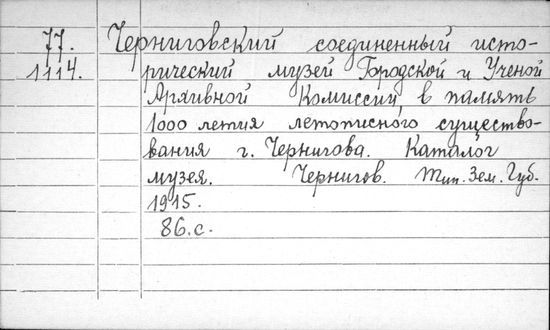 77. Черниговский соединенный исто-
1114. рический музей Городской и Ученой
Архивной Комиссии, в память
1000 летия летописного существо-
вания г. Чернигова. Каталог
музея. Чернигов. Тип. Зем. Губ.
1915.
86.с.